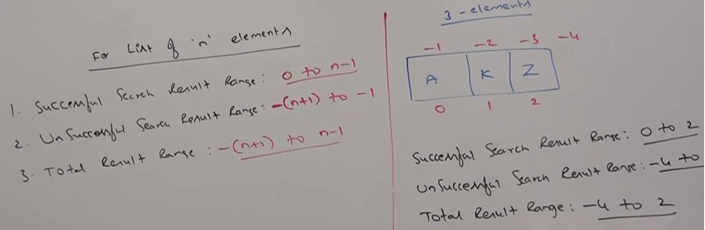 For List of 'n' elements
1. Successful Search Result Range: 0 to n-1
2. UnSuccessful Search Result Range: -(n+1) to -1
3. Total Result Range: -(n+1) to n-1
3-elements
-1 -2 -3 -4
A K Z
0 1 2
Successful Search Result Range: 0 to 2
UnSuccessful Search Result Range: -4 to
Total Result Range: -4 to 2